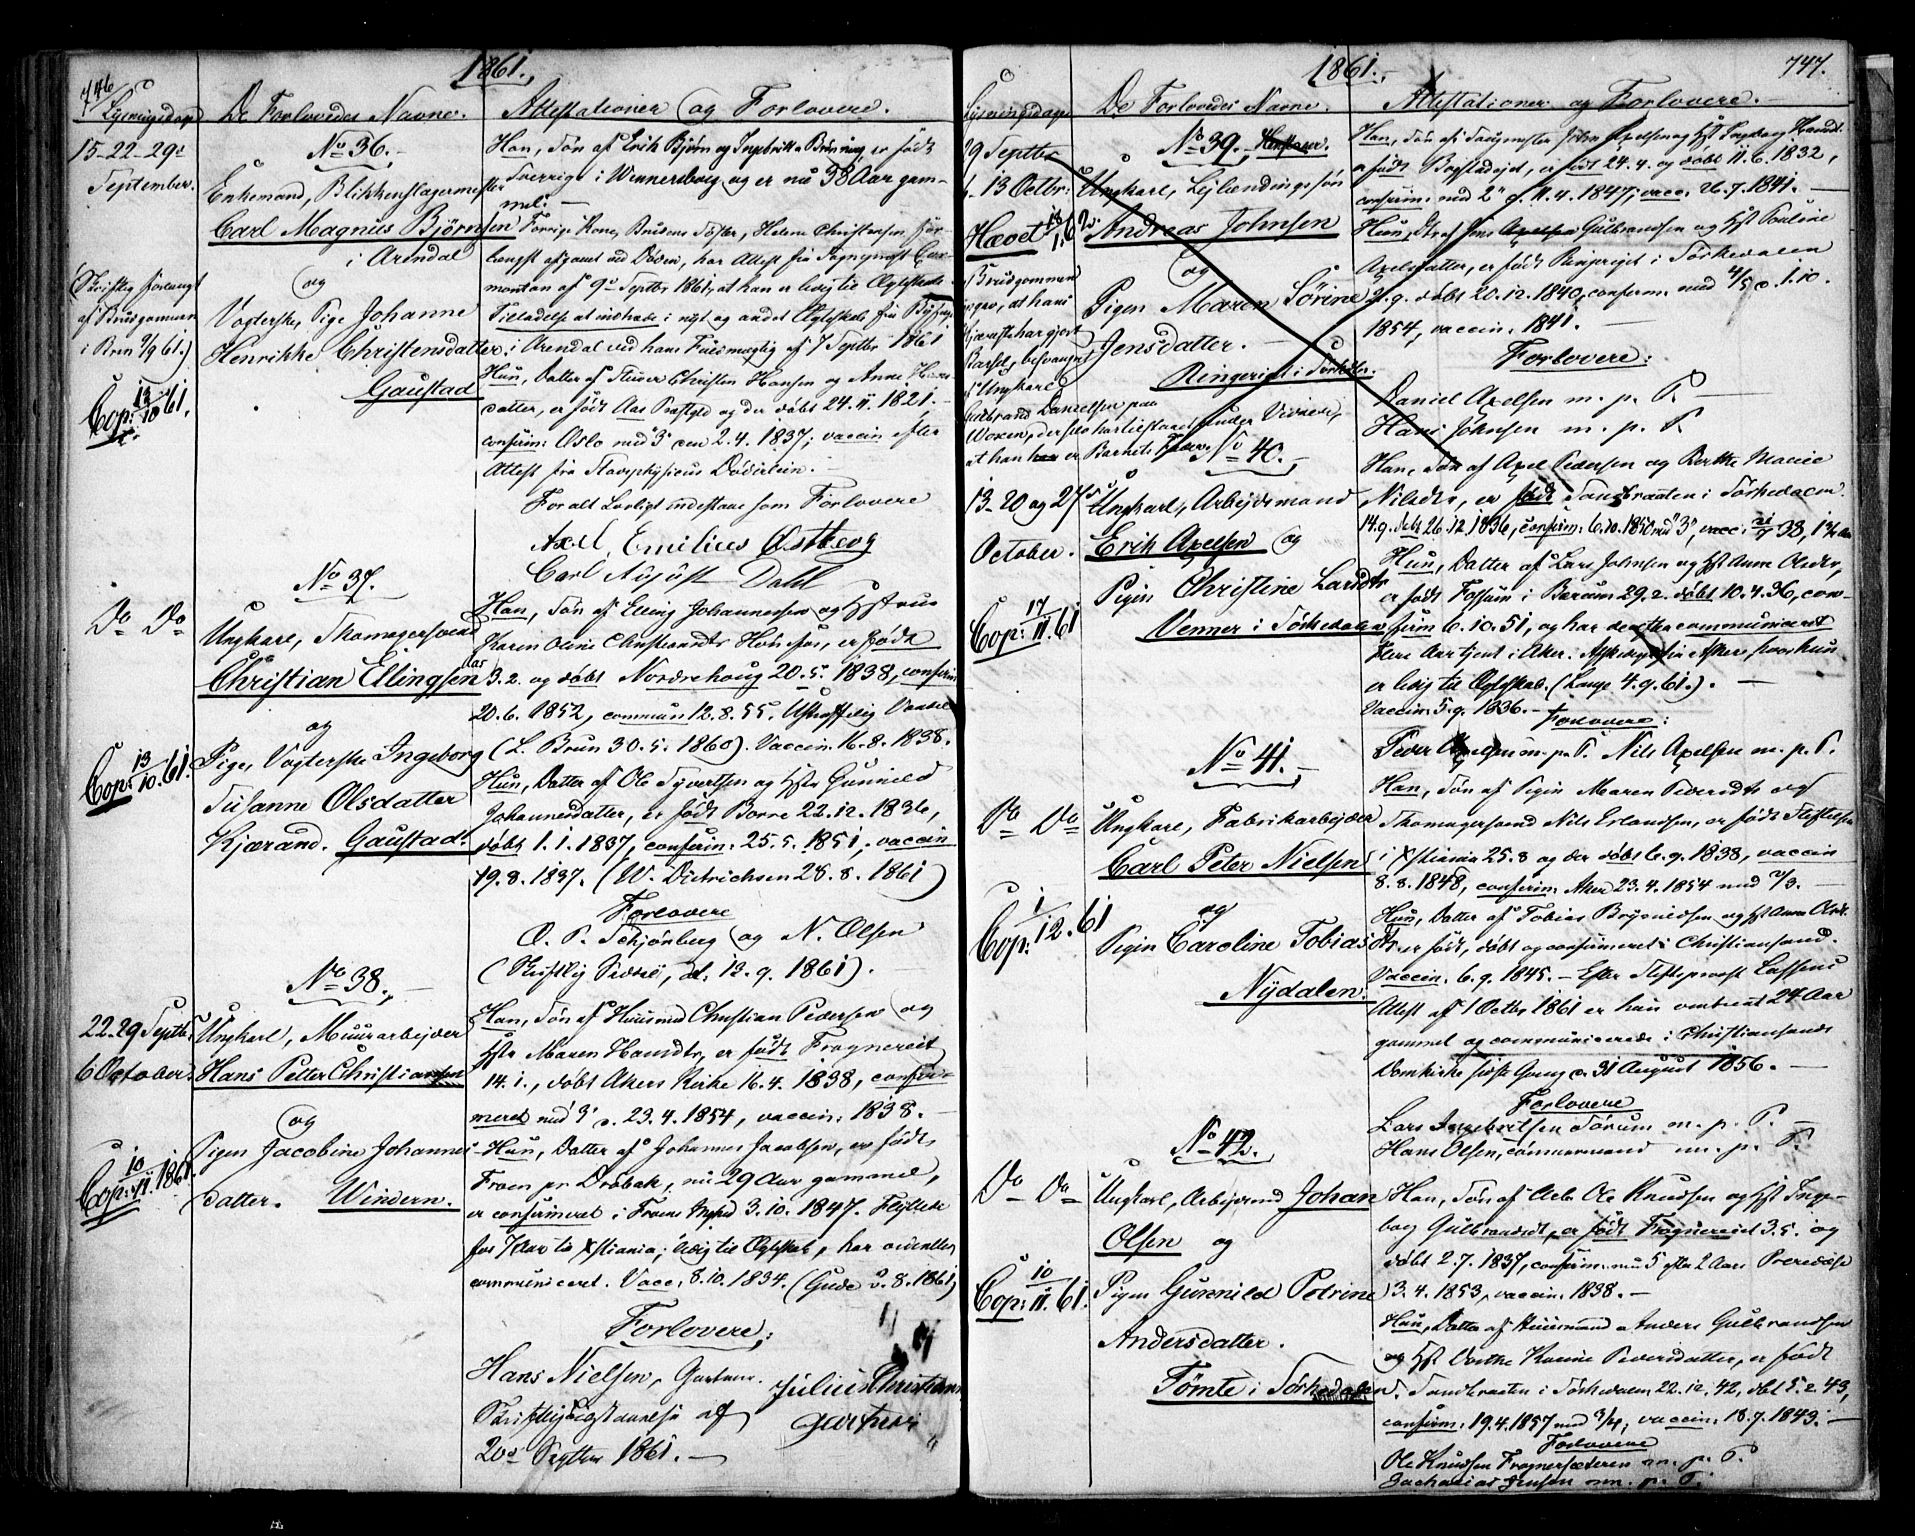 746
1861.
Lysningsdage
De Forlovedes Navne.
Attestationer og Forlovere.
15-22-29de
September.
No 36.
Enkemand, Blikkenslagermester
Carl Magnus Björnsen
i Arendal
og
Vogterske, Pige Johanne
Henrikke Christensdatter.
Gaustad
(Skriftlig forlangt
af Brudgommen
i Brev 9/9 61.)
Cop: 13/10 61.
Han, Søn af Erik Björn og er født
Sverrige i Wennersborg og er nu 38 Aar gam-
mel. —
Forrige Kone, Brudens Søster, Helene Christensen, for
længst afgaaet ved Døden, har Attest fra Sogneprest
af 9de Septbr 1861, at han er ledig til Ægteskab
Tilladelse at indtræde i nyt og andet Ægteskab fra Byfoged
i Arendal ved hans Fuldmægtig af 7 Septbr 1861
Hun, Datter af Christen Hansen og Anne
datter, er født Aas Præstgd og der døbt 24.11.1821,
confirm: Oslo med 3 den 2.4.1837; vaccin efter
Attest fra
For alt Lovligt indestaae som Forlovere
Axel Emilius Østberg
Carl August Dahl
No 37.
Do Do
Ungkarl, Thomagersvend
Christian Ellingsen
og
Pige, Vogterske Ingeborg
Susanne Olsdatter
Kjærand. Gaustad.
Cop: 13/10.61.
Han, Søn af Elling Johannesen og Hustrue
Karen Oline er født
3.2. og døbt Nordrehoug 20.5.1838, confirm
20.6.1852, commun 12.8.55. Ustraffelig Vandel
(L. Brun 30.5.1860). Vaccin. 16.8.1838.
Hun, Datter af Ole Syvertsen og Hstr Gunnild
Johannesdatter, er født Borre 22.12.1836,
døbt 1.1.1837, confirm: 25.5.1851, vaccin
19.8.1837. (W. Dietrichsen 28.8.1861)
Forlovere
O. P. Schjønberg og N. Olsen
12.9.1861).
No 38.
22-29 Septbr
6 October.
Ungkarl, Muurarbejder
Hans Petter Christiansen
og
Pigen Jacobine Johannes-
datter. Windern.
Cop: 10/11.1861.
Han, Søn af Huusmd Christian Pedersen og
Hstr Maren Hansdtr, er født Frognersæt
14.1., døbt Akers Kirke 16.4.1838, confir-
meret med 3 d. 23.4.1854, vaccin: 1838. —
Hun, Datter af Johannes Jacobsen, er født
Froen pr. Drøbak, nu 29 Aar gammel,
er confirmeret i Froens 3.10.1847. Flyttede
for 7 Aar til Xstiania; ledig til Ægteskab, har
communiceret. Vacc. 8.10.1834. (Gude 2.8.1861)
Forlovere:
Hans Nielsen, Gartner.
Julius Christian
Gartner
Skriftlig af
20de Septbr 1861. —
747.
1861.
Lysningsdage
De Forlovedes Navne.
Attestationer og Forlovere. —
29 Septbr
6. 13 Octbr:
No 39.
Ungkarl, Lejlændingssøn
Andreas Johnsen
og
Pigen Maren Sörine
Jensdatter.
Ringeriget i Sørkeda:
Hævet 18/1.62
Brudgommen
at hans
Kjæreste har gjort
Barsel, besvangret
Ungkarl
Danielsen paa
under Vidner,
at han er Barnets Fader.
Han, Søn af John Axelsen og Hst Ingeborg
født Bogstadejet, i født 24.4. og døbt 11.6.1832,
confirm. med 2 d. 11.4.1847; vacc. 26.7.1841. —
Hun, Dtr af Jens Gulbrandsen og Hst Pauline
Axelsdatter, er født Ringeriget i Sørkedalen
21.9. døbt 20.12.1840, confirm. med 4/5 d. 1.10.
1854, vaccin: 1841. —
Forlovere:
Daniel Axelsen m. p. P.
Hans Johnsen m. p. P.
No 40.
13-20 og 27
October.
Ungkarl, Arbejdsmand
Erik Axelsen og
Pigen Christine Larsdtr
Venner i Sørkedalen
Cop: 17/11 61
Han, Søn af Axel Pedersen og Berthe Marie
Nilsdtr, er født Sandbraaten i Sørkedalen
14.9. døbt 26.12.1836, confirm: 6.10.1850 med 3,
Hun, Datter af Lars Johnsen og Hst Anne Olsdtr,
er født Fossum i Bærum 29.2. døbt 10.4.36, con-
firm 6.10.51, og har derefter communiceret
flere Aar tjent i Aker. hvor hun
er ledig til Ægteskab. (Lange 4.9.61.). —
Vaccin. 5.9.1836. —
Forlovere:
Peder Axelsen m. p. P. Nils Axelsen m. p. P.
No 41. —
Do Do
Ungkarl, Fabrikarbejder
Carl Peter Nielsen
og
Pigen Caroline Tobias
Nydalen.
Cop: 1/12.61
Han, Søn af Pigen Maren Pedersdtr og
Thomagersvend Nils Erlandsen, er født Stiftelsen
i Xstiania 25.8 og der døbt 6.9.1838, vaccin
8.8.1848, confirm. Aker 23.4.1854 med 2/3. —
Hun, Datter af Tobias Brynildsen og Hst Anne
er født, døbt og confirmeret i Christiansand.
Vaccin. 6.9.1845. — Efter Stiftsprovst Lassens
Attest af 1 Octbr 1861 er hun omtrent 24 Aar
gammel og communicerede i Christiansands
Domkirke sidste Gang d. 31 August 1856. —
Forlovere
Lars Ingebretsen Sörum m. p. P.
Hans Olsen, m. p. P.
No 42.
Do Do
Ungkarl, Arbejdsmd Johan
Olsen og
Pigen Gunnild Petrine
Andersdatter.
Tömte i Sørkedalen.
Cop: 10/11.61.
Han, Søn af Arb. Ole Knudsen og Hst Inge-
borg Gulbrandsdt, er født Frogneræiet 3.5. og
døbt 2.7.1837, confirm. nu 5 efter 2 Aars
3.4.1853, vaccin: 1838. —
Hun, Datter af Huusmand Anders Gulbrandsen
og Hst Dorthe Karine Pedersdatter, er født
Sandbraaten i Sørkedalen 22.12.42, døbt 5.2.43,
confirm: 19.4.1857 med 3/4; vaccin: 18.7.1843. —
Forlovere
Ole Knudsen Frognersæteren m. p. P.
Zacharias Jensen m. p. P.